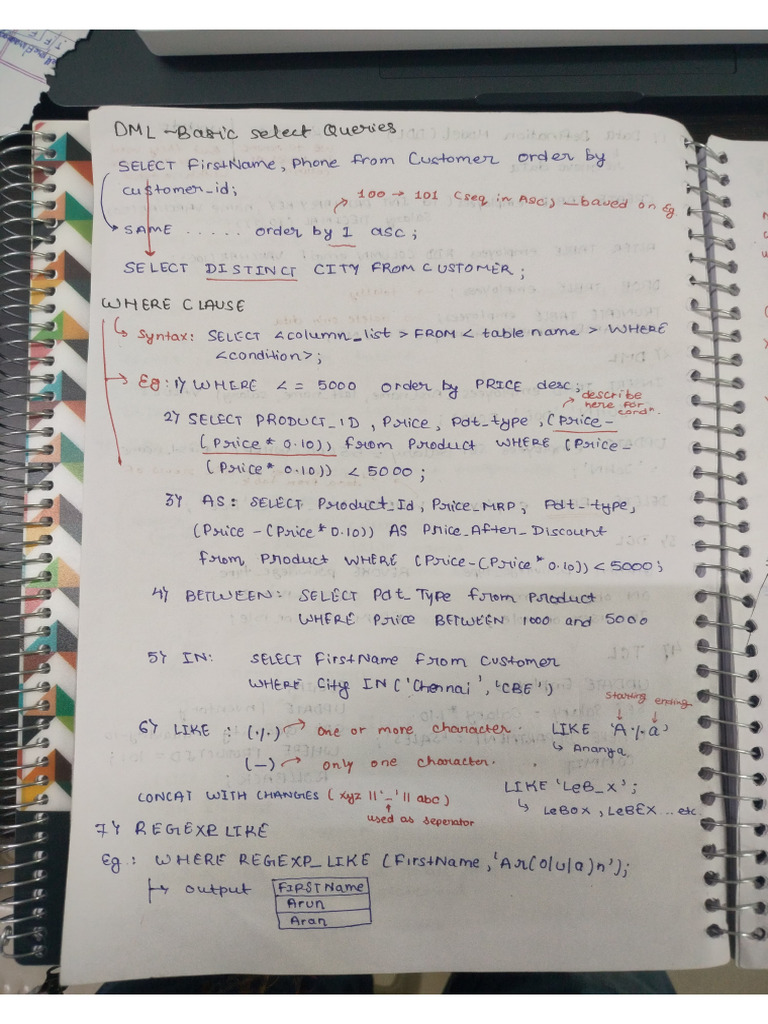 DML - Basic select Queries
SELECT FirstName, Phone from Customer order by
customer_id;
100 → 101 (seq in ASC) → based on Eg.
SAME ..... order by 1 asc;
SELECT DISTINCT CITY FROM CUSTOMER;
WHERE CLAUSE
Syntax: SELECT <column_list> FROM < table name > WHERE
<condition>;
Eg: 1) WHERE <= 5000 order by PRICE desc;
describe
here for
condn.
2) SELECT PRODUCT_ID, Price, Pdt_type, (Price-
(Price * 0.10)), from Product WHERE (Price-
(Price * 0.10)) < 5000;
3) AS: SELECT Product_Id, Price_MRP, Pdt_type,
(Price - (Price * 0.10)) AS Price_After_Discount
from Product WHERE (Price-(Price * 0.10)) < 5000;
4) BETWEEN: SELECT Pdt_Type from Product
WHERE Price BETWEEN 1000 and 5000
5) IN: SELECT FirstName from Customer
WHERE City IN ('Chennai', 'CBE')
starting ending
6) LIKE : (%) → one or more character. LIKE 'A%a'
↳ Ananya
(_) → only one character.
LIKE 'LeB_X';
CONCAT WITH CHANGES (xyz ||'_'|| abc)
↳ LeBOX, LeBEX ... etc
used as seperator
7) REGEXP_LIKE
Eg.: WHERE REGEXP_LIKE (FirstName, 'Ar(o|u|a)n');
→ output
FIRSTName
Arun
Aran